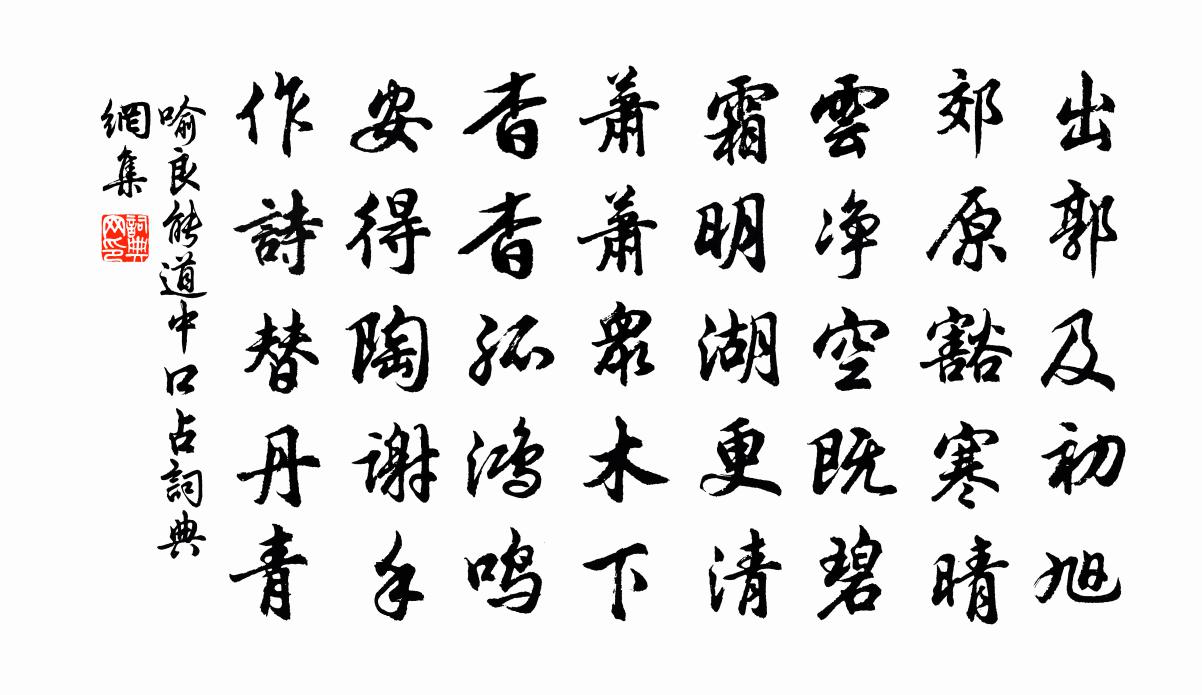 出郭及初旭
郊原豁寒晴
雲净空既碧
霜明湖更清
萧萧眾木下
杳杳孤鸿鸣
安得陶謝手
作詩替丹青
喻良能道中口占詞典
網集
詞典网印